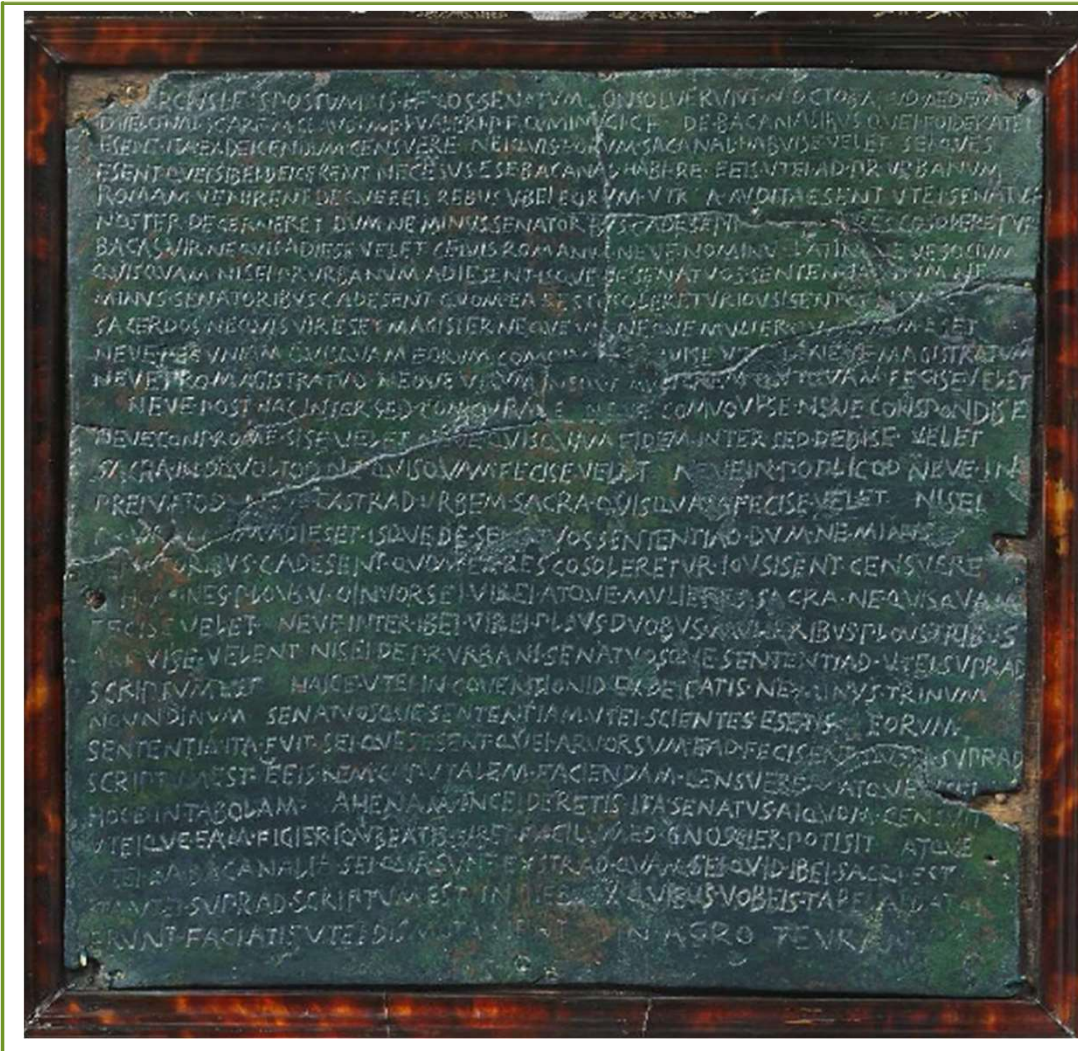 COS SENATVM CONSOLVERVNT N OCTOB APVD AEDEM
DVELONAI SC ARF M CLAVDI M F L VALERI P F Q MINVCI C F DE BACANALIBVS QVEI FOIDERATE
ESENT ITA EXDEICENDVM CENSVERE NEIQVIS EORVM SACANAL HABVISE VELET SEIQVES
ESENT QVEI SIBEI DEICERENT NECESVS ESE BACANAL HABERE EEIS VTEI AD PR VRBANVM
ROMAM VENIRENT DEQVE EEIS REBVS VBEI EORVM VTR A AVDITA ESENT VTEI SENATVS
NOSTER DECERNERET DVM NE MINVS SENATORBVS C ADESENT RES COSOLERETVR
BACAS VIR NEQVIS ADIESE VELET CEIVIS ROMANVS NEVE NOMINVS LATINI NEVE SOCIVM
QVISQVAM NISEI PR VRBANVM ADIESENT ISQVE DE SENATVOS SENTENTIAD DVM NE
MINVS SENATORIBVS C ADESENT QVOM EA RES COSOLERETVR IOVSISENT CENSVERE
SACERDOS NEQVIS VIR ESET MAGISTER NEQVE VIR NEQVE MVLIER QVISQVAM ESET
NEVE PECVNIAM QVISQVAM EORVM COMOINEM HABVISE VELET NEVE MAGISTRATVM
NEVE PRO MAGISTRATVD NEQVE VIRVM NEQVE MVLIEREM QVIQVAM FECISE VELET
NEVE POST HAC INTER SED CONIOVRASE NEVE COMVOVISE NEVE CONSPONDISE
NEVE CONPROMESISE VELET NEVE QVISQVAM FIDEM INTER SED DEDISE VELET
SACRA IN OQVOLTOD NE QVISQVAM FECISE VELET NEVE IN POPLICOD NEVE IN
PREIVATOD NEVE EXSTRAD VRBEM SACRA QVISQVAM FECISE VELET NISEI
PR VRBANVM ADIESET ISQVE DE SENATVOS SENTENTIAD DVM NE MINVS
SENATORIBVS C ADESENT QVOM EA RES COSOLERETVR IOVSISENT CENSVERE
HOMINES PLOVS V OINVORSEI VIREI ATQVE MVLIERES SACRA NE QVISQVAM
FECISE VELET NEVE INTER IBEI VIREI PLOVS DVOBVS MVLIERIBVS PLOVS TRIBVS
ARFVISE VELENT NISEI DE PR VRBANI SENATVOSQVE SENTENTIAD VTEI SVPRAD
SCRIPTVM EST HAICE VTEI IN COVENTIONID EXDEICATIS NE MINVS TRINVM
NOVNDINVM SENATVOSQVE SENTENTIAM VTEI SCIENTES ESETIS EORVM
SENTENTIA ITA FVIT SEIQVES ESENT QVEI ARVORSVM EAD FECISENT QVAM SVPRAD
SCRIPTVM EST EEIS REM CAPVTALEM FACIENDAM CENSVERE ATQVE VTEI
HOCE IN TABOLAM AHENAM INCEIDERETIS ITA SENATVS AIQVOM CENSVIT
VTEIQVE EAM FIGIER IOVBEATIS VBEI FACILVMED GNOSCIER POTISIT ATQVE
VTEI EA BACANALIA SEI QVA SVNT EXSTRAD QVAM SEI QVID IBEI SACRI EST
ITA VTEI SVPRAD SCRIPTVM EST IN DIEBVS X QVIBVS VOBEIS TABELAI DATAI
ERVNT FACIATIS VTEI DISMOTA SIENT IN AGRO TEVRANO